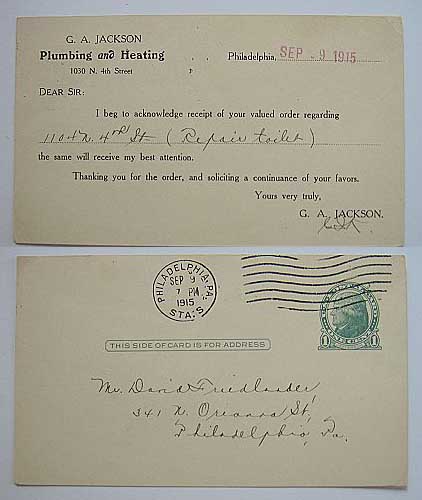 G. A. JACKSON
Plumbing and Heating
1030 N. 4th Street
Philadelphia, SEP 9 1915
DEAR SIR:
I beg to acknowledge receipt of your valued order regarding
1104 N. 4th St (Repair toilet)
the same will receive my best attention.
Thanking you for the order, and soliciting a continuance of your favors.
Yours very truly,
G. A. JACKSON.
PHILADELPHIA, PA.
SEP 9
7 PM
1915
STA. S
THIS SIDE OF CARD IS FOR ADDRESS
1 1
Mr. David Friedlander
341 N. Orianna St,
Philadelphia, Pa.